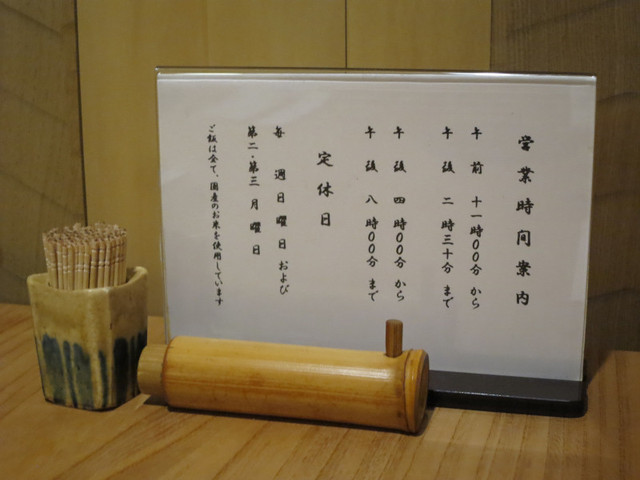 営業時間案内
午前 十一時００分 から
午後 二時三十分 まで
午後 四時００分 から
午後 八時００分 まで
定休日
毎週日曜日 および
第二・第三月曜日
ご飯は全て、国産のお米を使用しています